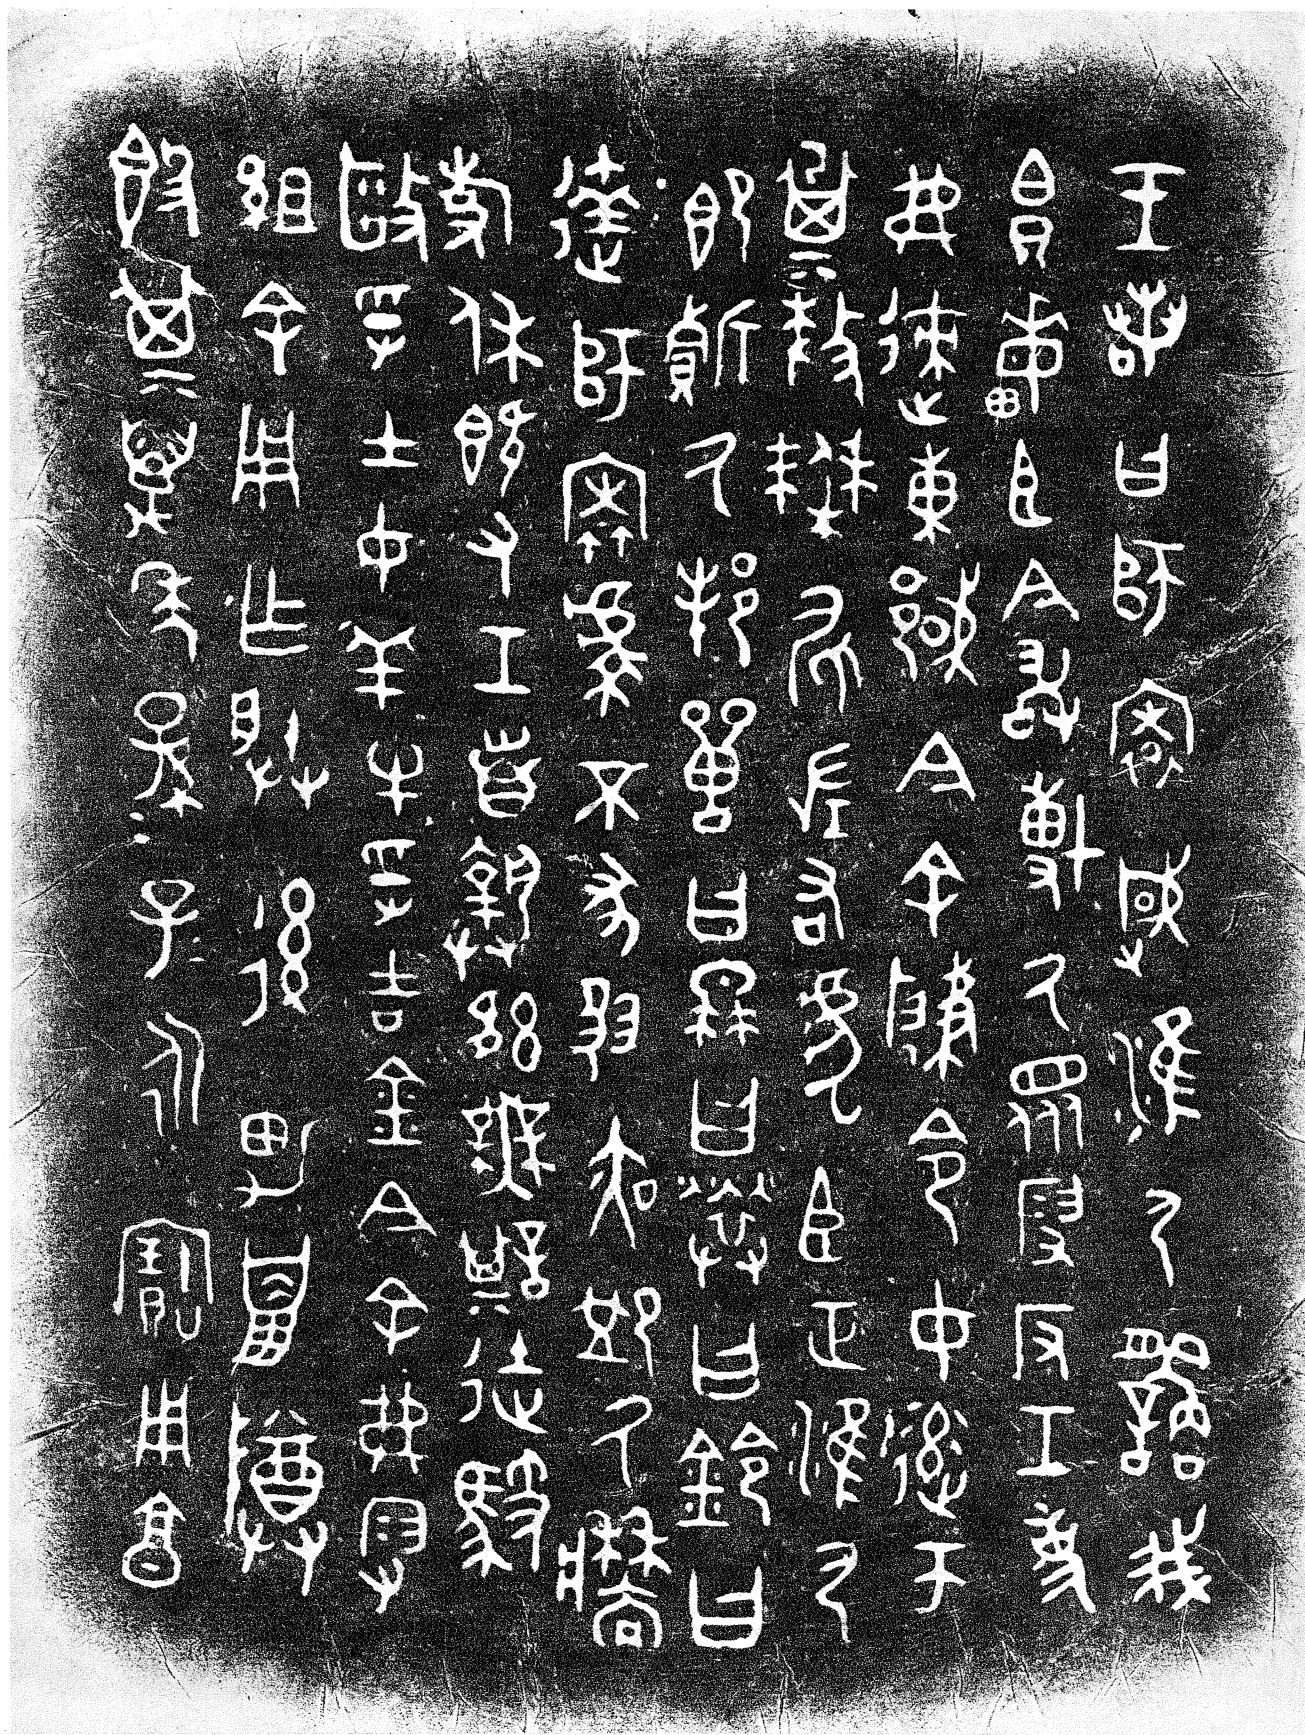 王若曰師㝨𢦔淮尸繇我
帛畮臣今敢博厥眾叚反工吏
弗速東國今余肇令女達齊
師㠱釐僰尸左右虎臣正淮尸
即質厥邦獸曰冉曰䍙曰鈴曰
達師㝨虔不墜夙夜卹厥牆
事休既又工折首執訊無諆徒馭
毆孚士女羊牛孚吉金今余弗叚
組余用乍朕後男巤尊
簋其萬年孫子永寶用享